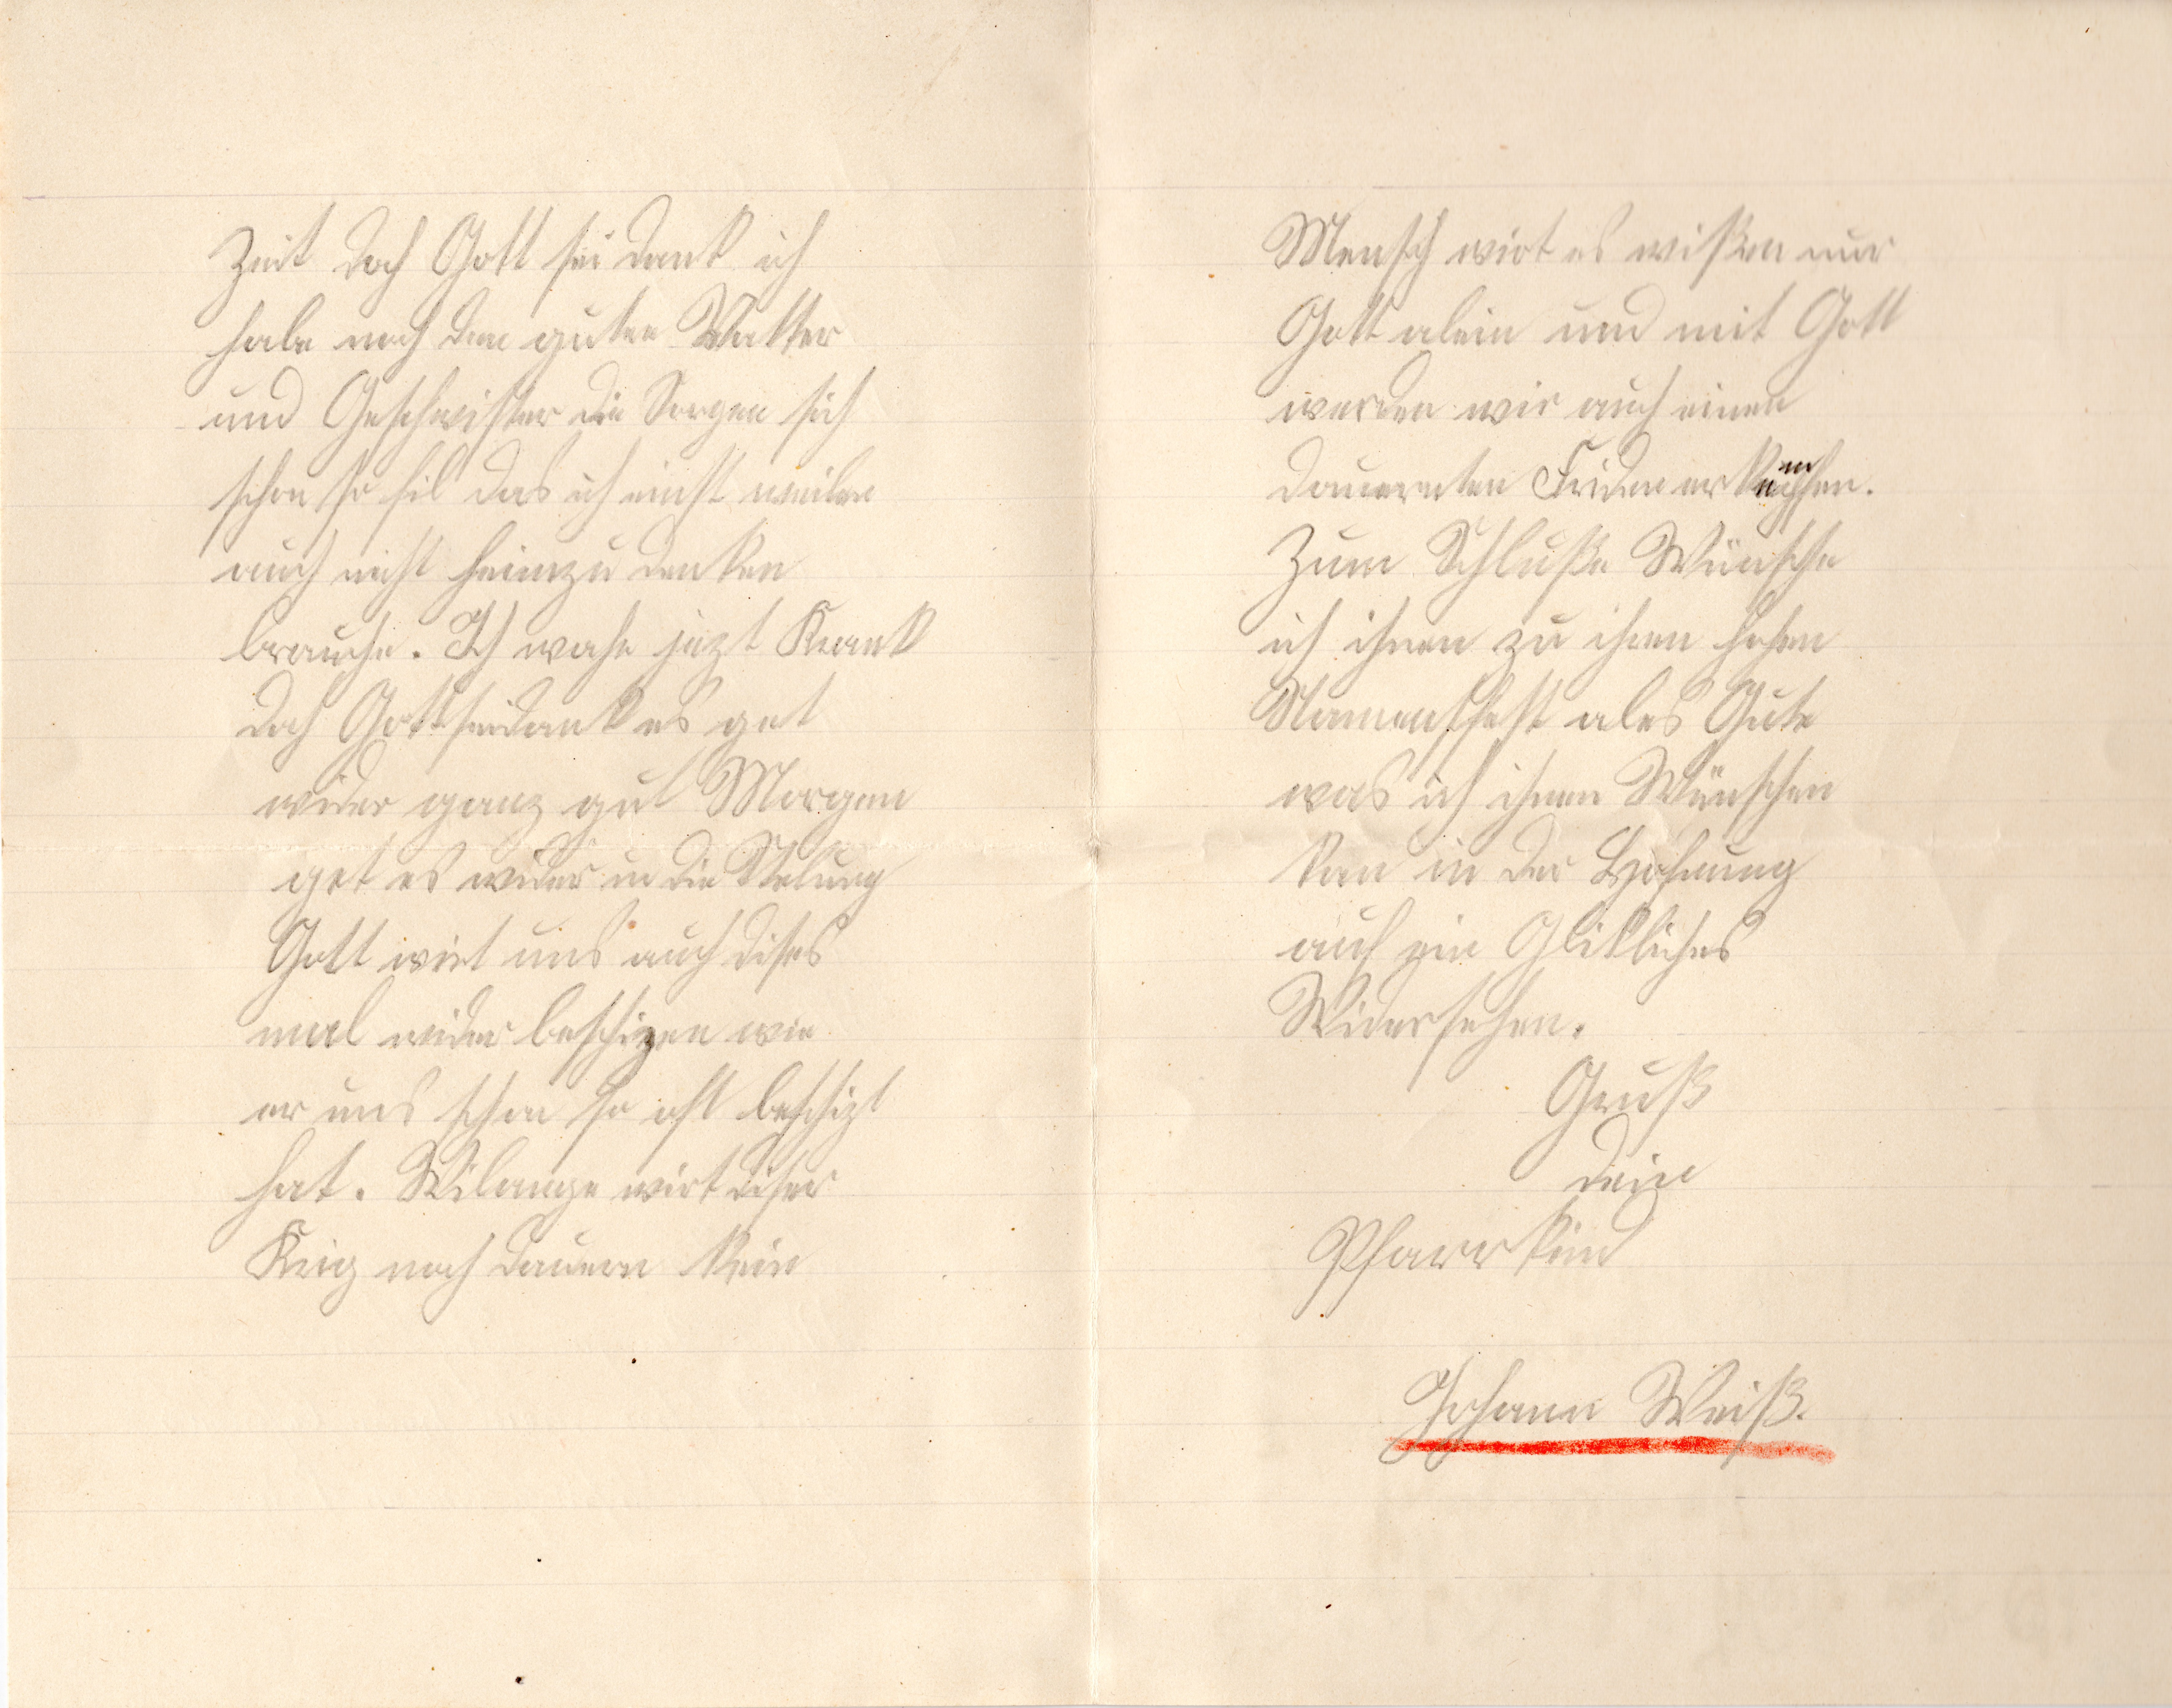 Zeit doch Gott sei dank ich
habe noch den guten Vatter
und Geschwister die Sorgen sich
schon so fil das ich nicht weiter
auch nicht heimzu denken
brauche. Ich wahr jezt Krank
doch Gottseidank es get
wider ganz gut Morgen
get es wider in die Stelung
Gott wirt uns auch dises
mal wider beschizen wie
er uns schon so oft beschizt
hat. Wilange wirt diser
Krig noch dauern kein
Mensch wirt es wißen nur
Gott alein und mit Gott
werden wir auch einen
dauernten Friden er
Zum Schluße Wünsche
ich ihnen zu ihren hohen
Namensfest ales Gute
was ich ihnen Wünschen
kan in der Hofnung
auf ein Glikliches
Widersehen.
Gruß
dein
Pfarrkind
Johann Weiß.